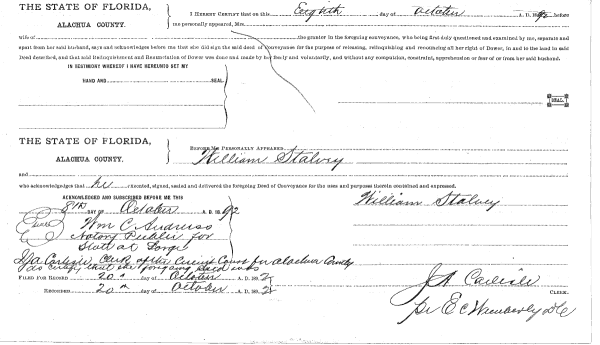 THE STATE OF FLORIDA,
ALACHUA COUNTY.
I HEREBY CERTIFY that on this Eighth day of October A. D. 1892 before
me personally appeared, Mrs.
wife of the grantor in the foregoing conveyance, who being first duly questioned and examined by me, separate and
apart from her said husband, says and acknowledges before me that she did sign the said deed of conveyance for the purpose of releasing, relinquishing and renouncing all her right of Dower, in and to the land in said
Deed described, and that said Relinquishment and Renunciation of Dower was done and made by her freely and voluntarily, and without any compulsion, constraint, apprehension or fear of or from her said husband.
IN TESTIMONY WHEREOF I HAVE HEREUNTO SET MY
HAND AND SEAL
SEAL.
THE STATE OF FLORIDA,
ALACHUA COUNTY.
BEFORE ME PERSONALLY APPEARED
William Stalvey
and
who acknowledges that he executed, signed, sealed and delivered the foregoing Deed of Conveyance for the uses and purposes therein contained and expressed.
ACKNOWLEDGED AND SUBSCRIBED BEFORE ME THIS
8th DAY OF October A. D. 1892
William Stalvey
Wm C Andruss
Notary Public for
State at Large
I J A Carlisle, Clerk of the Circuit Court for Alachua County
do certify that the foregoing Deed was
FILED FOR RECORD 20th day of October A. D. 1892
RECORDED 20th day of October A. D. 1892
J A Carlisle
CLERK.
pr E C Wimberly D C